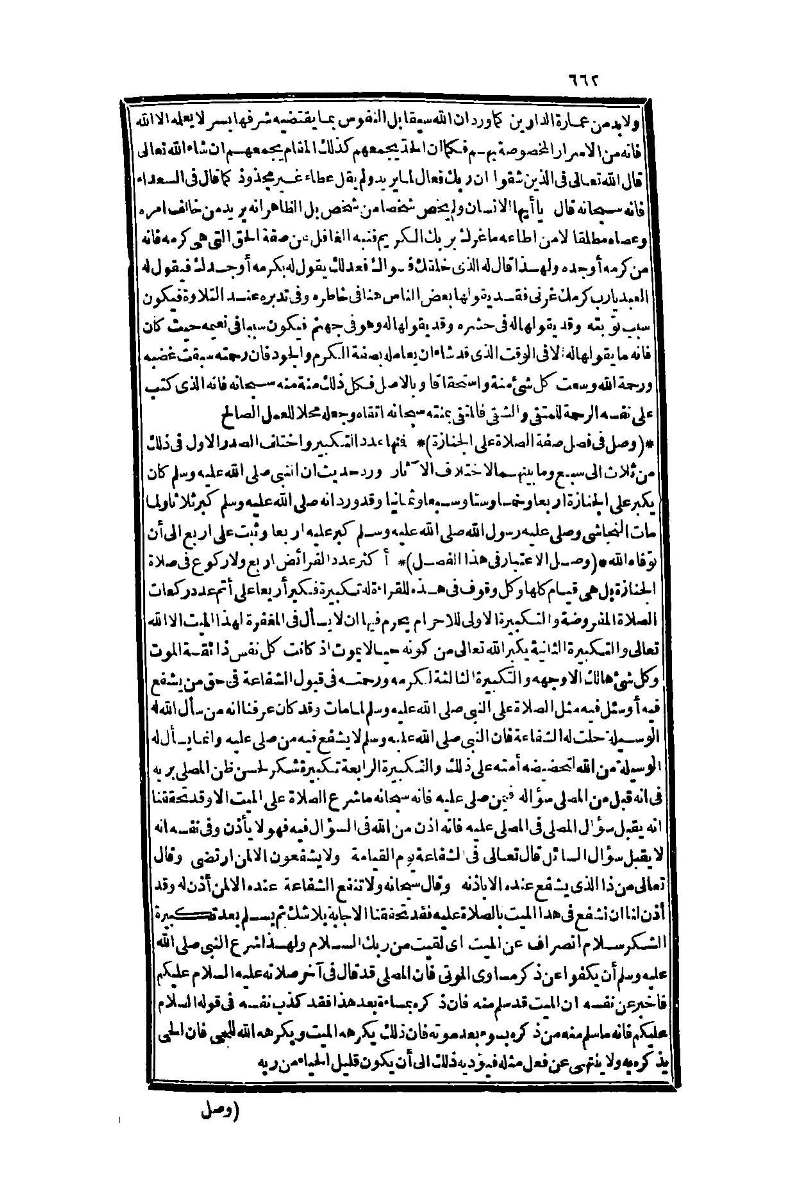 ٦٦٢
ولابد من عمارة الدارين كما ورد ان الله سيقابل النفوس بما يقتضيه شرفها بسر لا يعلمه الا الله
فانه من الاسرار المخصوصة بهم فكما ان الحد يجمعهم كذلك المقام يجمعهم ان شاء الله تعالى
قال الله تعالى فى الذين شقوا ان ربك فعال لما يريد ولم يقل عطاء غير مجذوذ كما قال فى السعداء
فانه سبحانه قال يا أيها الانسان ولم يخص شخصا من شخص بل الظاهر انه يريد من خالف امره
وعصاه مطلقا لا من اطاعه ما غرك بربك الكريم فنبه الغافل عن صفة الحق التى هى كرمه فانه
من كرمه أوجده ولهذا قال له الذى خلقك فسواك فعدلك يقول له بكرمه أوجدك فيقول له
العبد يارب كرمك غرنى فقد يقولها بعض الناس هنا فى خاطره وفى تدبره عند التلاوة فيكون
سبب توبته وقد يقولها له فى حشره وقد يقولها له وهو فى جهنم فيكون سببا فى نعيمه حيث كان
فانه ما يقولها له الا فى الوقت الذى قد شاء ان يعامله بصفة الكرم والجود فان رحمته سبقت غضبه
ورحمة الله وسعت كل شئ منة واستحقاقا وبالاصل فكل ذلك منة منه سبحانه فانه الذى كتب
على نفسه الرحمة للمتقى والشقى فالمتقى بمنته سبحانه اتقاه وجعله محلا للعمل الصالح
*(وصل فى فصل صفة الصلاة على الجنازة)* فنها عدد التكبير واختلف الصدر الاول فى ذلك
من ثلاث الى سبع وما بينهما لاختلاف الآثار ورد حديث ان النبى صلى الله عليه وسلم كان
يكبر على الجنازة اربعا وخمسا وستا وسبعا وثمانيا وقد ورد انه صلى الله عليه وسلم كبر ثلاثا ولما
مات النجاشى وصلى عليه رسول الله صلى الله عليه وسلم كبر عليه اربعا وثبت على اربع الى أن
توفاه الله *(وصل الاعتبار فى هذا الفصل)* أكثر عدد الفرائض اربع ولا ركوع فى صلاة
الجنازة بل هى قيام كلها وكل وقوف فى هذه للقراءة له تكبيرة فكبر أربعا على أتم عدد ركعات
الصلاة المفروضة والتكبيرة الاولى للاحرام يحرم فيها ان لا يسأل فى المغفرة لهذا الميت الا الله
تعالى والتكبيرة الثانية يكبر الله تعالى من كونه حيا لا يموت اذ كانت كل نفس ذائقة الموت
وكل شئ هالك الا وجهه والتكبيرة الثالثة لكرمه ورحمته فى قبول الشفاعة فى حق من يشفع
فيه أو سئل فيه مثل الصلاة على النبى صلى الله عليه وسلم لما مات وقد كان عرفنا انه من سأل الله له
الوسيلة حلت له الشفاعة فان النبى صلى الله عليه وسلم لا يشفع فيه من صلى عليه وانما يسأل له
الوسيلة من الله لتحضيضه أمته على ذلك والتكبيرة الرابعة تكبيرة شكر لحسن ظن المصلى بربه
فى انه قبل من المصلى سؤاله فيمن صلى عليه فانه سبحانه ما شرع الصلاة على الميت الا وقد تحققنا
انه يقبل سؤال المصلى فى المصلى عليه فانه اذن من الله فى السؤال فيه فهو لا يأذن وفى نفسه انه
لا يقبل سؤال السائل قال تعالى فى الشفاعة يوم القيامة ولا يشفعون الا لمن ارتضى وقال
تعالى من ذا الذى يشفع عنده الا باذنه وقال سبحانه ولا تنفع الشفاعة عنده الا لمن أذن له وقد
أذن لنا ان نشفع فى هذا الميت بالصلاة عليه فقد تحققنا الاجابة بلا شك ثم يسلم بعد تكبيرة
الشكر سلام انصراف عن الميت اى لقيت من ربك السلام ولهذا شرع النبى صلى الله
عليه وسلم أن يكفوا عن ذكر مساوى الموتى فان المصلى قد قال فى آخر صلاته عليه السلام عليكم
فاخبر عن نفسه ان الميت قد سلم منه فان ذكره بمساءة بعد هذا فقد كذب نفسه فى قوله السلام
عليكم فانه ما سلم منه من ذكره بسوء بعد موته فان ذلك يكرهه الميت ويكرهه الله للحى فان الحى
يذكر به ولا ينتهى عن فعل مثله فيؤديه ذلك الى أن يكون قليل الحياء من ربه
(وصل